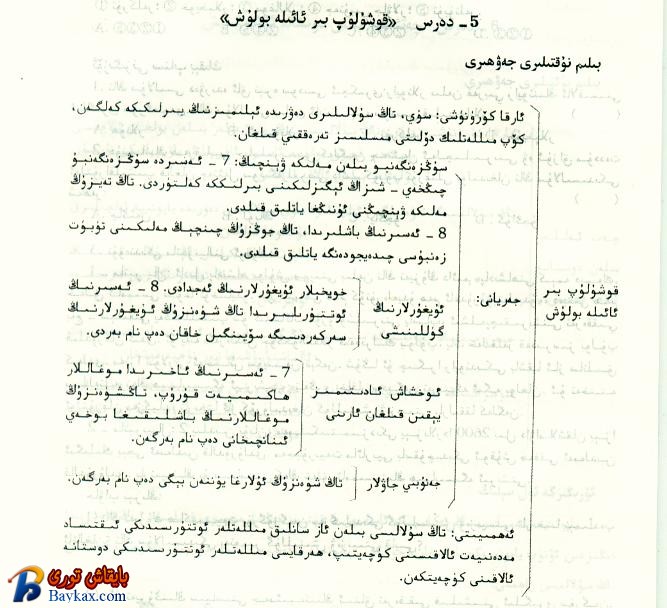 5 ـ دەرس «قوشۇلۇپ بىر ئائىلە بولۇش»
بىلىم نۇقتىلىرى جەۋھىرى
ئارقا كۆرۈنۈشى: سۈي، تاڭ سۇلالىلىرى دەۋرىدە ئېلىمىزنىڭ بىرلىككە كەلگەن،
كۆپ مىللەتلىك دۆلىتى مىسلىسىز تەرەققىي قىلغان.
سوڭزەنگەنبو بىلەن مەلىكە ۋېنچېڭ: 7 ـ ئەسىردە سوڭزەنگەنبو
چىڭخەي ـ شىزاڭ ئېگىزلىكىنى بىرلىككە كەلتۈردى. تاڭ تەيزۇڭ
مەلىكە ۋېنچېڭنى ئۇنىڭغا ياتلىق قىلدى.
8 ـ ئەسىرنىڭ باشلىرىدا، تاڭ جوڭزۇڭ جىنچېڭ مەلىكىنى تۈبۈت
زەنپۇسى چىدەيجودەنگە ياتلىق قىلدى.
قوشۇلۇپ بىر
ئائىلە بولۇش
جەريانى:
ئۇيغۇرلارنىڭ
گۈللىنىشى
خويخېلار ئۇيغۇرلارنىڭ ئەجدادى. 8 ـ ئەسىرنىڭ
ئوتتۇرىلىرىدا تاڭ شۋەنزۇڭ ئۇيغۇرلارنىڭ
سەركەردىسىگە سۆيىنگىل خاقان دەپ نام بەردى.
ئوخشاش ئادىتىمىز
يېقىن قىلغان ئارىنى
7 ـ ئەسىرنىڭ ئاخىرىدا موغاللار
ھاكىمىيەت قۇرۇپ، تاڭشۋەنزۇڭ
موغاللارنىڭ باشلىقىغا بوخەي
ئىنانچخانى دەپ نام بەرگەن.
جەنۇبىي جاۋلار
تاڭ شۋەنزۇڭ ئۇلارغا يۈننەن بېگى دەپ نام بەرگەن.
ئەھمىيىتى: تاڭ سۇلالىسى بىلەن ئاز سانلىق مىللەتلەر ئوتتۇرىسىدىكى ئىقتىساد
مەدەنىيەت ئالاقىسىنى كۈچەيتىپ، ھەرقايسى مىللەتلەر ئوتتۇرىسىدىكى دوستانە
ئالاقىنى كۈچەيتكەن.
بايقاش تورى
Baykax.com